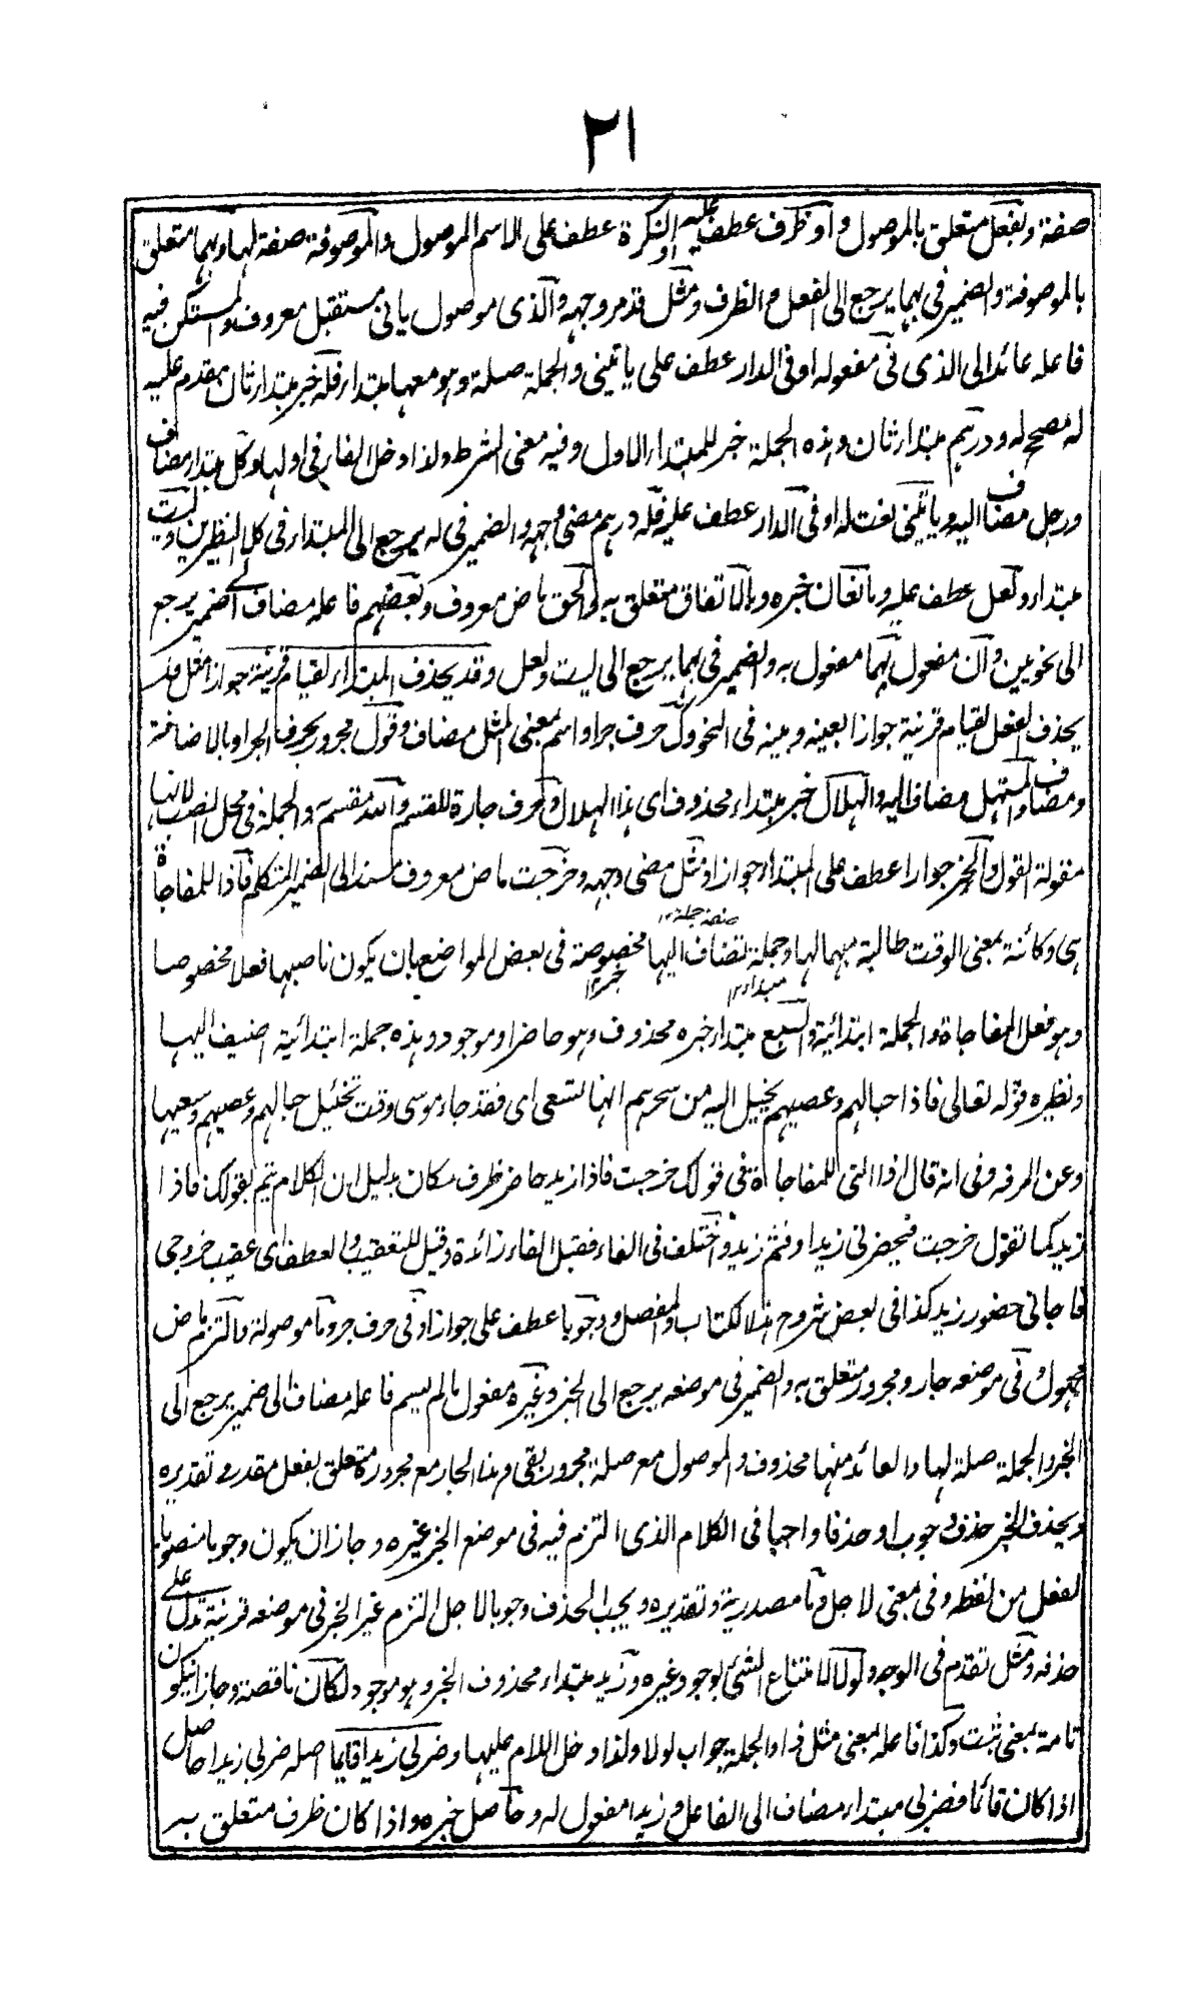 ٢١
صفة وبفعل متعلق بالموصول واو ظرف عطف عليه او النكرة عطف على الاسم الموصول والموصوفة صفة لها وبهما متعلق
بالموصوفة والضمير في بهما يرجع الى الفعل والظرف ومثل قد مر وجهه والذى موصول ياتى مستقبل معروف والمستكن فيه
فاعله عائد الى الذى نى مفعوله او فى الدار عطف على ياتينى والجملة صلة وهو معها مبتدا، فله خبر مبتدا، ثان مقدم عليه
له مصحح له ودرهم مبتدا، ثان وهذه الجملة خبر للمبتدا، الاول وفيه معنى الشرط ولذا دخل الفاء فى اولها وكل مبتدا، مضاف
ورجل مضاف اليه وياتينى نعت له او فى الدار عطف عليه فله درهم مضى وجهه والضمير فى له يرجع الى المبتدا، فى كلا النظيرين وليت
مبتدا، ولعل عطف عليه ومانعان خبره وبالاتفاق متعلق به والحق ماض معروف وبعضهم فاعله مضاف الى ضمير يرجع
الى نحويين وان مفعول بهما مفعول به والضمير فى بهما يرجع الى ليت ولعل وقد يحذف المبتدا، لقيام قرينة جوازا مثل قد
يحذف الفعل لقيام قرينة جوازا بعينه وبينه فى النحو وك حرف جر او اسم بمعنى المثل مضاف وقول مجرور بحرف الجر او بالاضافة
ومضاف والمستهل مضاف اليه والهلال خبر مبتدا، محذوف اى هذا الهلال و حرف جارة للقسم والله مقسم به والجملة فى محل النصب لانها
مقولة القول والخبر جوازا عطف على المبتدا، جوازا ومثل مضى وجهه وخرجت ماض معروف مسند الى الضمير المتكلم فاذا للمفاجاة
هى وكائنة بمعنى الوقت طالبة مبهما لها وجملة تضاف اليها مخصوصة فى بعض المواضع بان يكون ناصبها فعلا مخصوصا
وهو فعل المفاجاة والجملة ابتدائية والسبع مبتدا، خبره محذوف وهو حاضر او موجود وهذه جملة ابتدائية اضيف اليها
ونظيره قوله تعالى فاذا حبالهم وعصيهم يخيل اليه من سحرهم انها تسعى اى فقد جاء موسى وقت تخئيل حبالهم وعصيهم وسعيها
وعن المرفوقى انه قال اذا التى للمفاجاة فى قولك خرجت فاذا زيد حاضر ظرف مكان بدليل ان الكلام يتم بقولك فاذا
زيد كما تقول خرجت فيحضرنى زيد او فثم زيد واختلف فى الفاء فقيل الفاء زائدة وقيل للتعقيب والعطف اى عقيب خروجى
فاجانى حضور زيد كذا فى بعض شروح هذا الكتاب والمفصل ووجوبا عطف على جوازا وفى حرف جر وما موصولة والتزم ماض
مجهول فى موضعه جار ومجرور متعلق به والضمير فى موضعه يرجع الى الخبر وغيره مفعول مالم يسم فاعله مضاف الى ضمير يرجع الى
الخبر والجملة صلة لها والعائد منها محذوف والموصول مع صلة مجرور بفى وهذا الجار مع مجروره متعلق بفعل مقدر وتقديره
ويحذف الخبر حذف وجوب او حذفا واجبا فى الكلام الذى التزم فيه فى موضع الخبر غيره وجاز ان يكون وجوبا منصوبا
لفعل من لفظه وفى بمعنى لاجل وما مصدرية وتقديره ويجب الحذف وجوبا لاجل التزم غير الخبر فى موضعه قرينة تدل على
حذفه ومثل تقدم فى الوجه ولولا لامتناع الشئ لوجود غيره وزيد مبتدا، محذوف الخبر وهو موجود لكان ناقصة وجاز ان يكون
تامة بمعنى ثبت وكذا فاعله بمعنى مثل ذا والجملة جواب لولا ولذا دخل اللام عليها وضربى زيدا قايما اصله ضربى زيدا حاصل
اذا كان قائما فضربى مبتدا، مضاف الى الفاعل وزيدا مفعول له وحاصل خبره واذا كان ظرف متعلق به